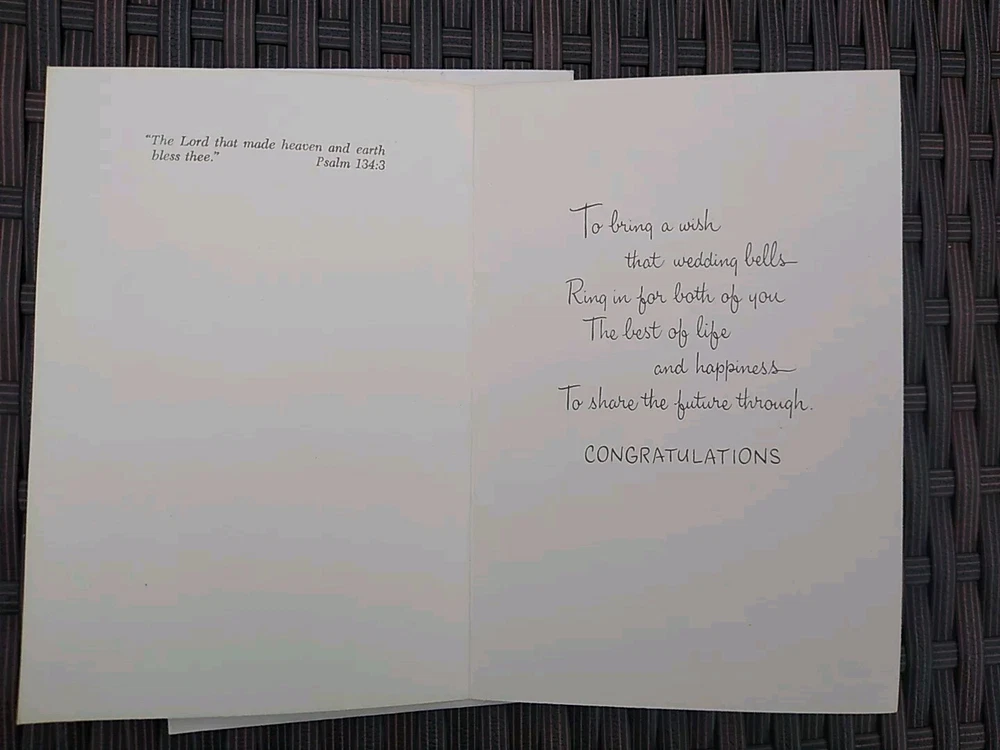 “The Lord that made heaven and earth
bless thee.” Psalm 134:3
To bring a wish
that wedding bells
Ring in for both of you
The best of life
and happiness
To share the future through.
CONGRATULATIONS